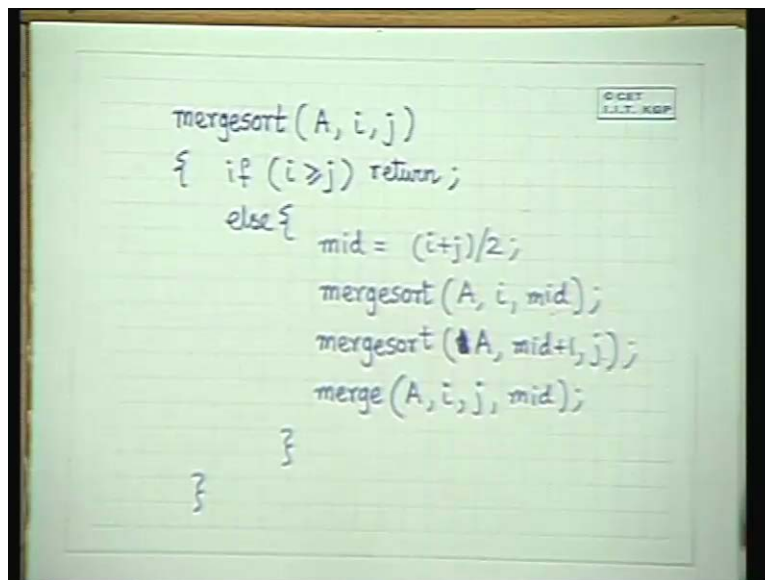 © CET
I.I.T. KGP
mergesort (A, i, j)
{ if (i ≥ j) return ;
else {
mid = (i+j)/2 ;
mergesort (A, i, mid) ;
mergesort (A, mid+1, j) ;
merge (A, i, j, mid) ;
}
}